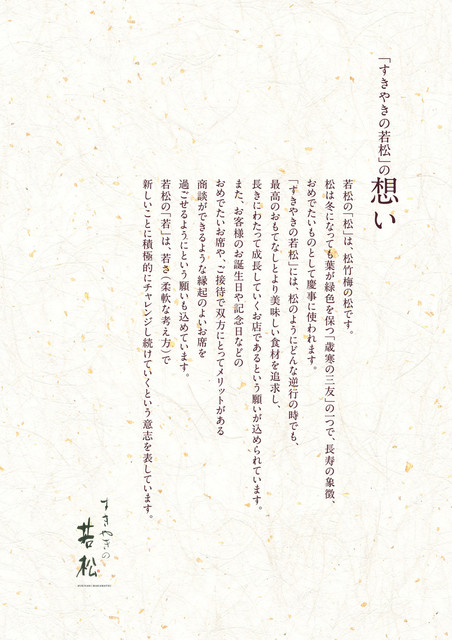 「すきやきの若松」の想い
若松の「松」は、松竹梅の松です。
松は冬になっても葉が緑色を保つ「歳寒の三友」の一つで、長寿の象徴、
おめでたいものとして慶事に使われます。
「すきやきの若松」には、松のようにどんな逆行の時でも、
最高のおもてなしとより美味しい食材を追求し、
長きにわたって成長していくお店であるという願いが込められています。
また、お客様のお誕生日や記念日などの
おめでたいお席や、ご接待で双方にとってメリットがある
商談ができるような縁起のよいお席を
過ごせるようにという願いも込めています。
若松の「若」は、若さ（柔軟な考え方）で
新しいことに積極的にチャレンジし続けていくという意志を表しています。
すきやきの
若松
SUKIYAKI WAKAMATSU